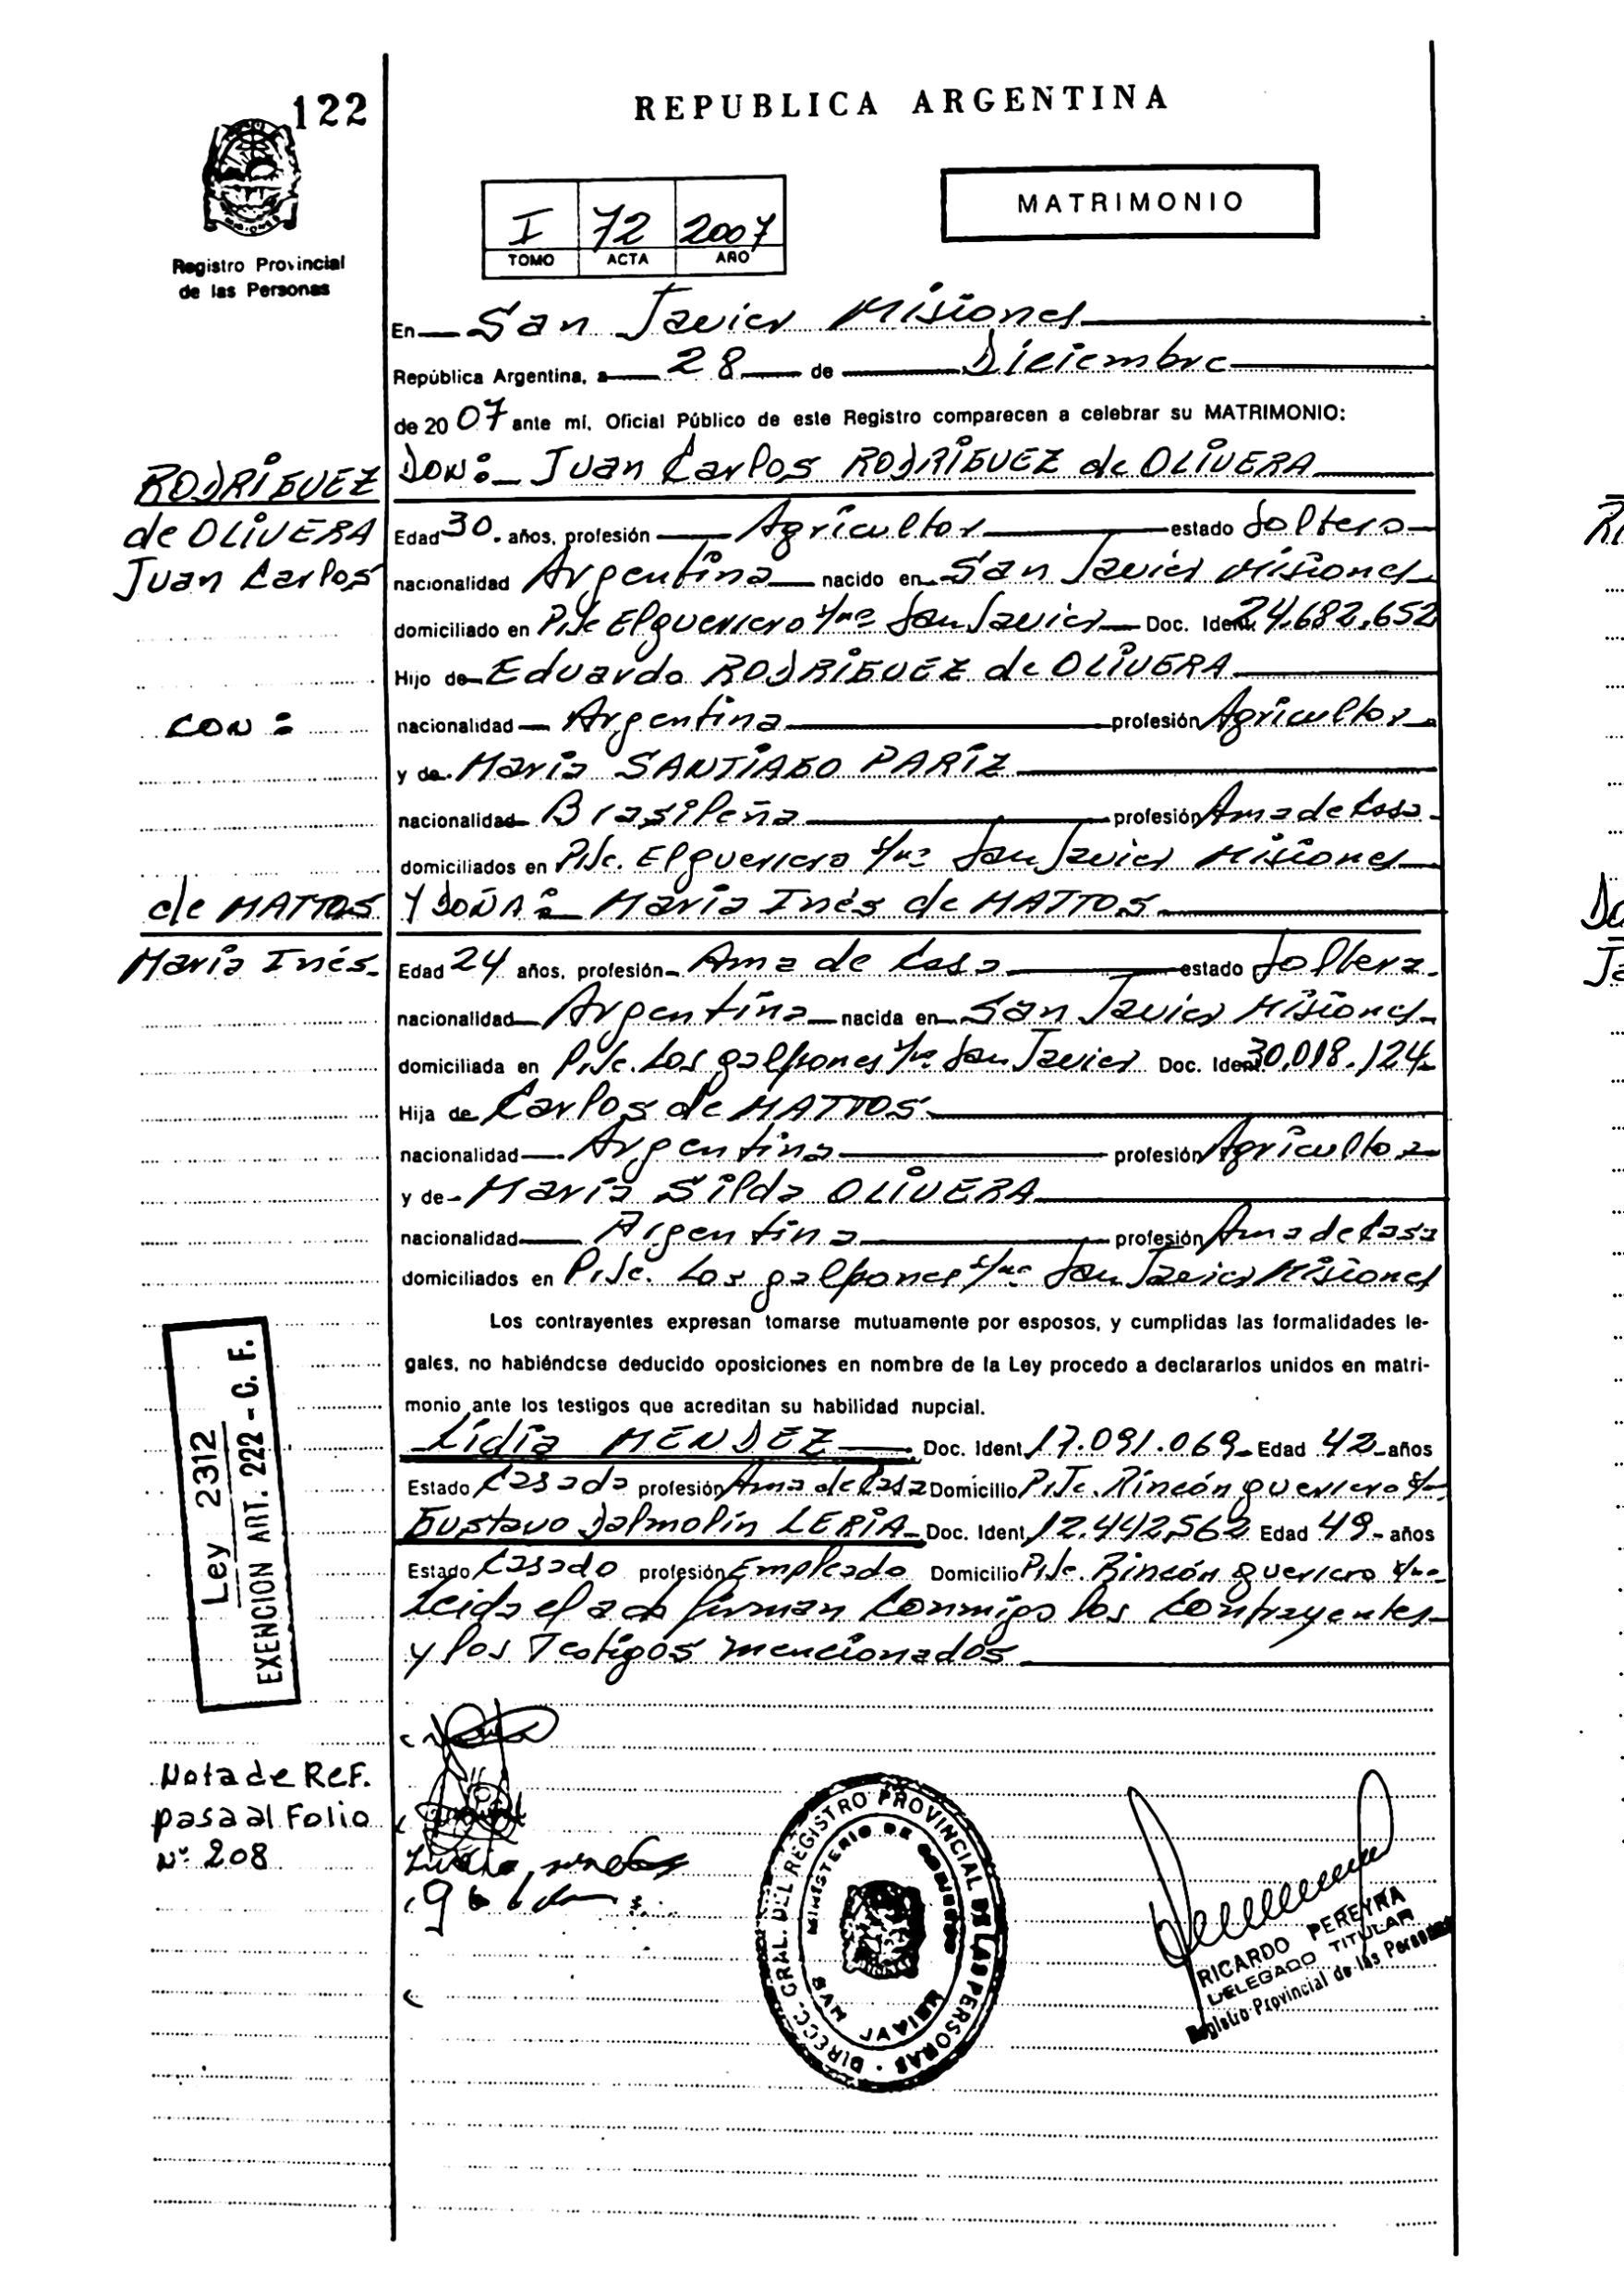 122
REPUBLICA ARGENTINA
Registro Provincial
de las Personas
I 72 2007
TOMO ACTA AÑO
MATRIMONIO
En San Javier Misiones
República Argentina, a 28 de Diciembre
de 2007 ante mí, Oficial Público de este Registro comparecen a celebrar su MATRIMONIO:
RODRIGUEZ
de OLIVERA
Juan Carlos
DON: Juan Carlos RODRIGUEZ de OLIVERA
Edad 30. años, profesión Agricultor estado Soltero
nacionalidad Argentina nacido en San Javier Misiones
domiciliado en Pje El guerrero s/nº San Javier Doc. Ident. 24.682.652
Hijo de Eduardo RODRIGUEZ de OLIVERA
CON:
nacionalidad Argentina profesión Agricultor
y de María SANTIAGO PARIZ
nacionalidad Brasileña profesión Ama de Casa
domiciliados en Pje. El guerrero s/nº San Javier Misiones
de MATTOS
María Inés
Y DOÑA: María Inés de MATTOS
Edad 24 años, profesión Ama de Casa estado Soltera
nacionalidad Argentina nacida en San Javier Misiones
domiciliada en Pje. Los galpones s/nº San Javier Doc. Ident. 30.018.124
Hija de Carlos de MATTOS
nacionalidad Argentina profesión Agricultor
y de María Silda OLIVERA
nacionalidad Argentina profesión Ama de Casa
domiciliados en Pje. Los galpones s/nº San Javier Misiones
Los contrayentes expresan tomarse mutuamente por esposos, y cumplidas las formalidades le-
gales, no habiéndose deducido oposiciones en nombre de la Ley procedo a declararlos unidos en matri-
monio ante los testigos que acreditan su habilidad nupcial.
Lidia MENDEZ Doc. Ident. 17.091.069 Edad 42 años
Estado Casada profesión Ama de Casa Domicilio Pje. Rincón guerrero s/nº
Gustavo Dalmolín LERIA Doc. Ident. 12.442.562 Edad 49 años
Estado Casado profesión Empleado Domicilio Pje. Rincón guerrero s/nº
Leida el acta firman conmigo los contrayentes
y los Testigos mencionados
Ley 2312
EXENCION ART. 222 - C. F.
Nota de Ref.
pasa al Folio
Nº 208
DIRECC. GRAL. DEL REGISTRO PROVINCIAL DE LAS PERSONAS
MINISTERIO DE GOBIERNO
SAN JAVIER
RICARDO PEREYRA
DELEGADO TITULAR
Registro Provincial de las Personas